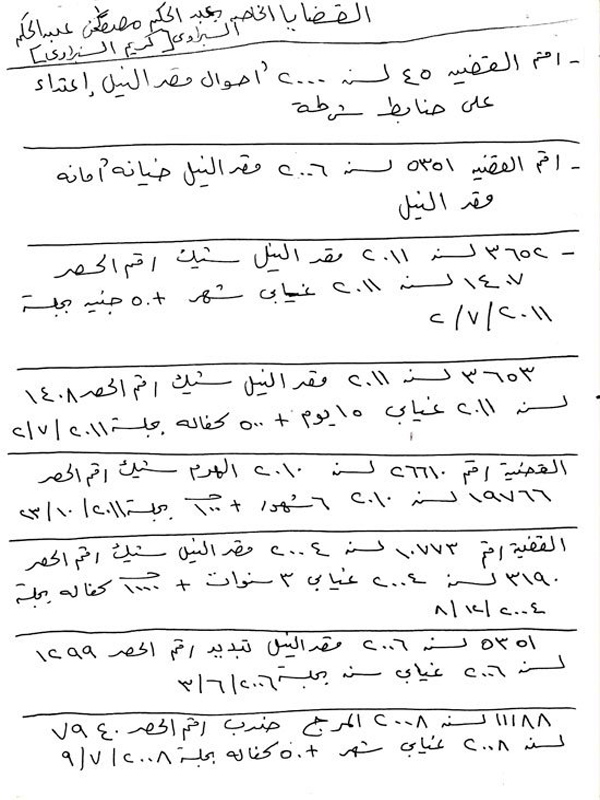 القضايا الخاصه بعبد الحكم مصطفى عبد الحكم
[كريم السنراوى]
- رقم القضيه ٤٥ لسنه ٢٠٠٠ أحوال مقر النيل إعتداء
على ضابط شرطة
- رقم القضيه ٥٣٥١ لسنه ٢٠٠٦ مقر النيل خيانه أمانه
مقر النيل
- ٣٦٥٢ لسنه ٢٠١١ مقر النيل شيك رقم الحصر
١٤٠٧ لسنه ٢٠١١ غيابى شهر + ٥٠ جنيه بجلسة
٢/٧/٢٠١١
٣٦٥٣ لسنه ٢٠١١ مقر النيل شيك رقم الحصر ١٤٠٨
لسنه ٢٠١١ غيابي ١٥ يوم + ٥٠٠ كفاله بجلسة ٢/٧/٢٠١١
القضية رقم ٢٦٦١٠ لسنه ٢٠١٠ الهرم شيك رقم الحصر
١٩٧٦٦ لسنه ٢٠١٠ ٦ شهور + ١٠٠ جـ بجلسة ٢٣/١٠/٢٠١١
القضية رقم ١٠٧٧٣ لسنه ٢٠٠٤ مقر النيل شيك رقم الحصر
٣١٩٠ لسنه ٢٠٠٤ غيابي ٣ سنوات + ١٠٠٠٠ جـ كفاله بجلسة
٨/١٢/٢٠٠٤
٥٣٥١ لسنه ٢٠٠٦ مقر النيل تبديد رقم الحصر ١٢٩٩
لسنه ٢٠٠٦ غيابي سنه بجلسة ٣/٦/٢٠٠٦
١١١٨٨ لسنه ٢٠٠٨ المرج ضرب رقم الحصر ٧٩٤٠
لسنه ٢٠٠٨ غيابي شهر + ٥٠ كفاله بجلسة ٩/٧/٢٠٠٨